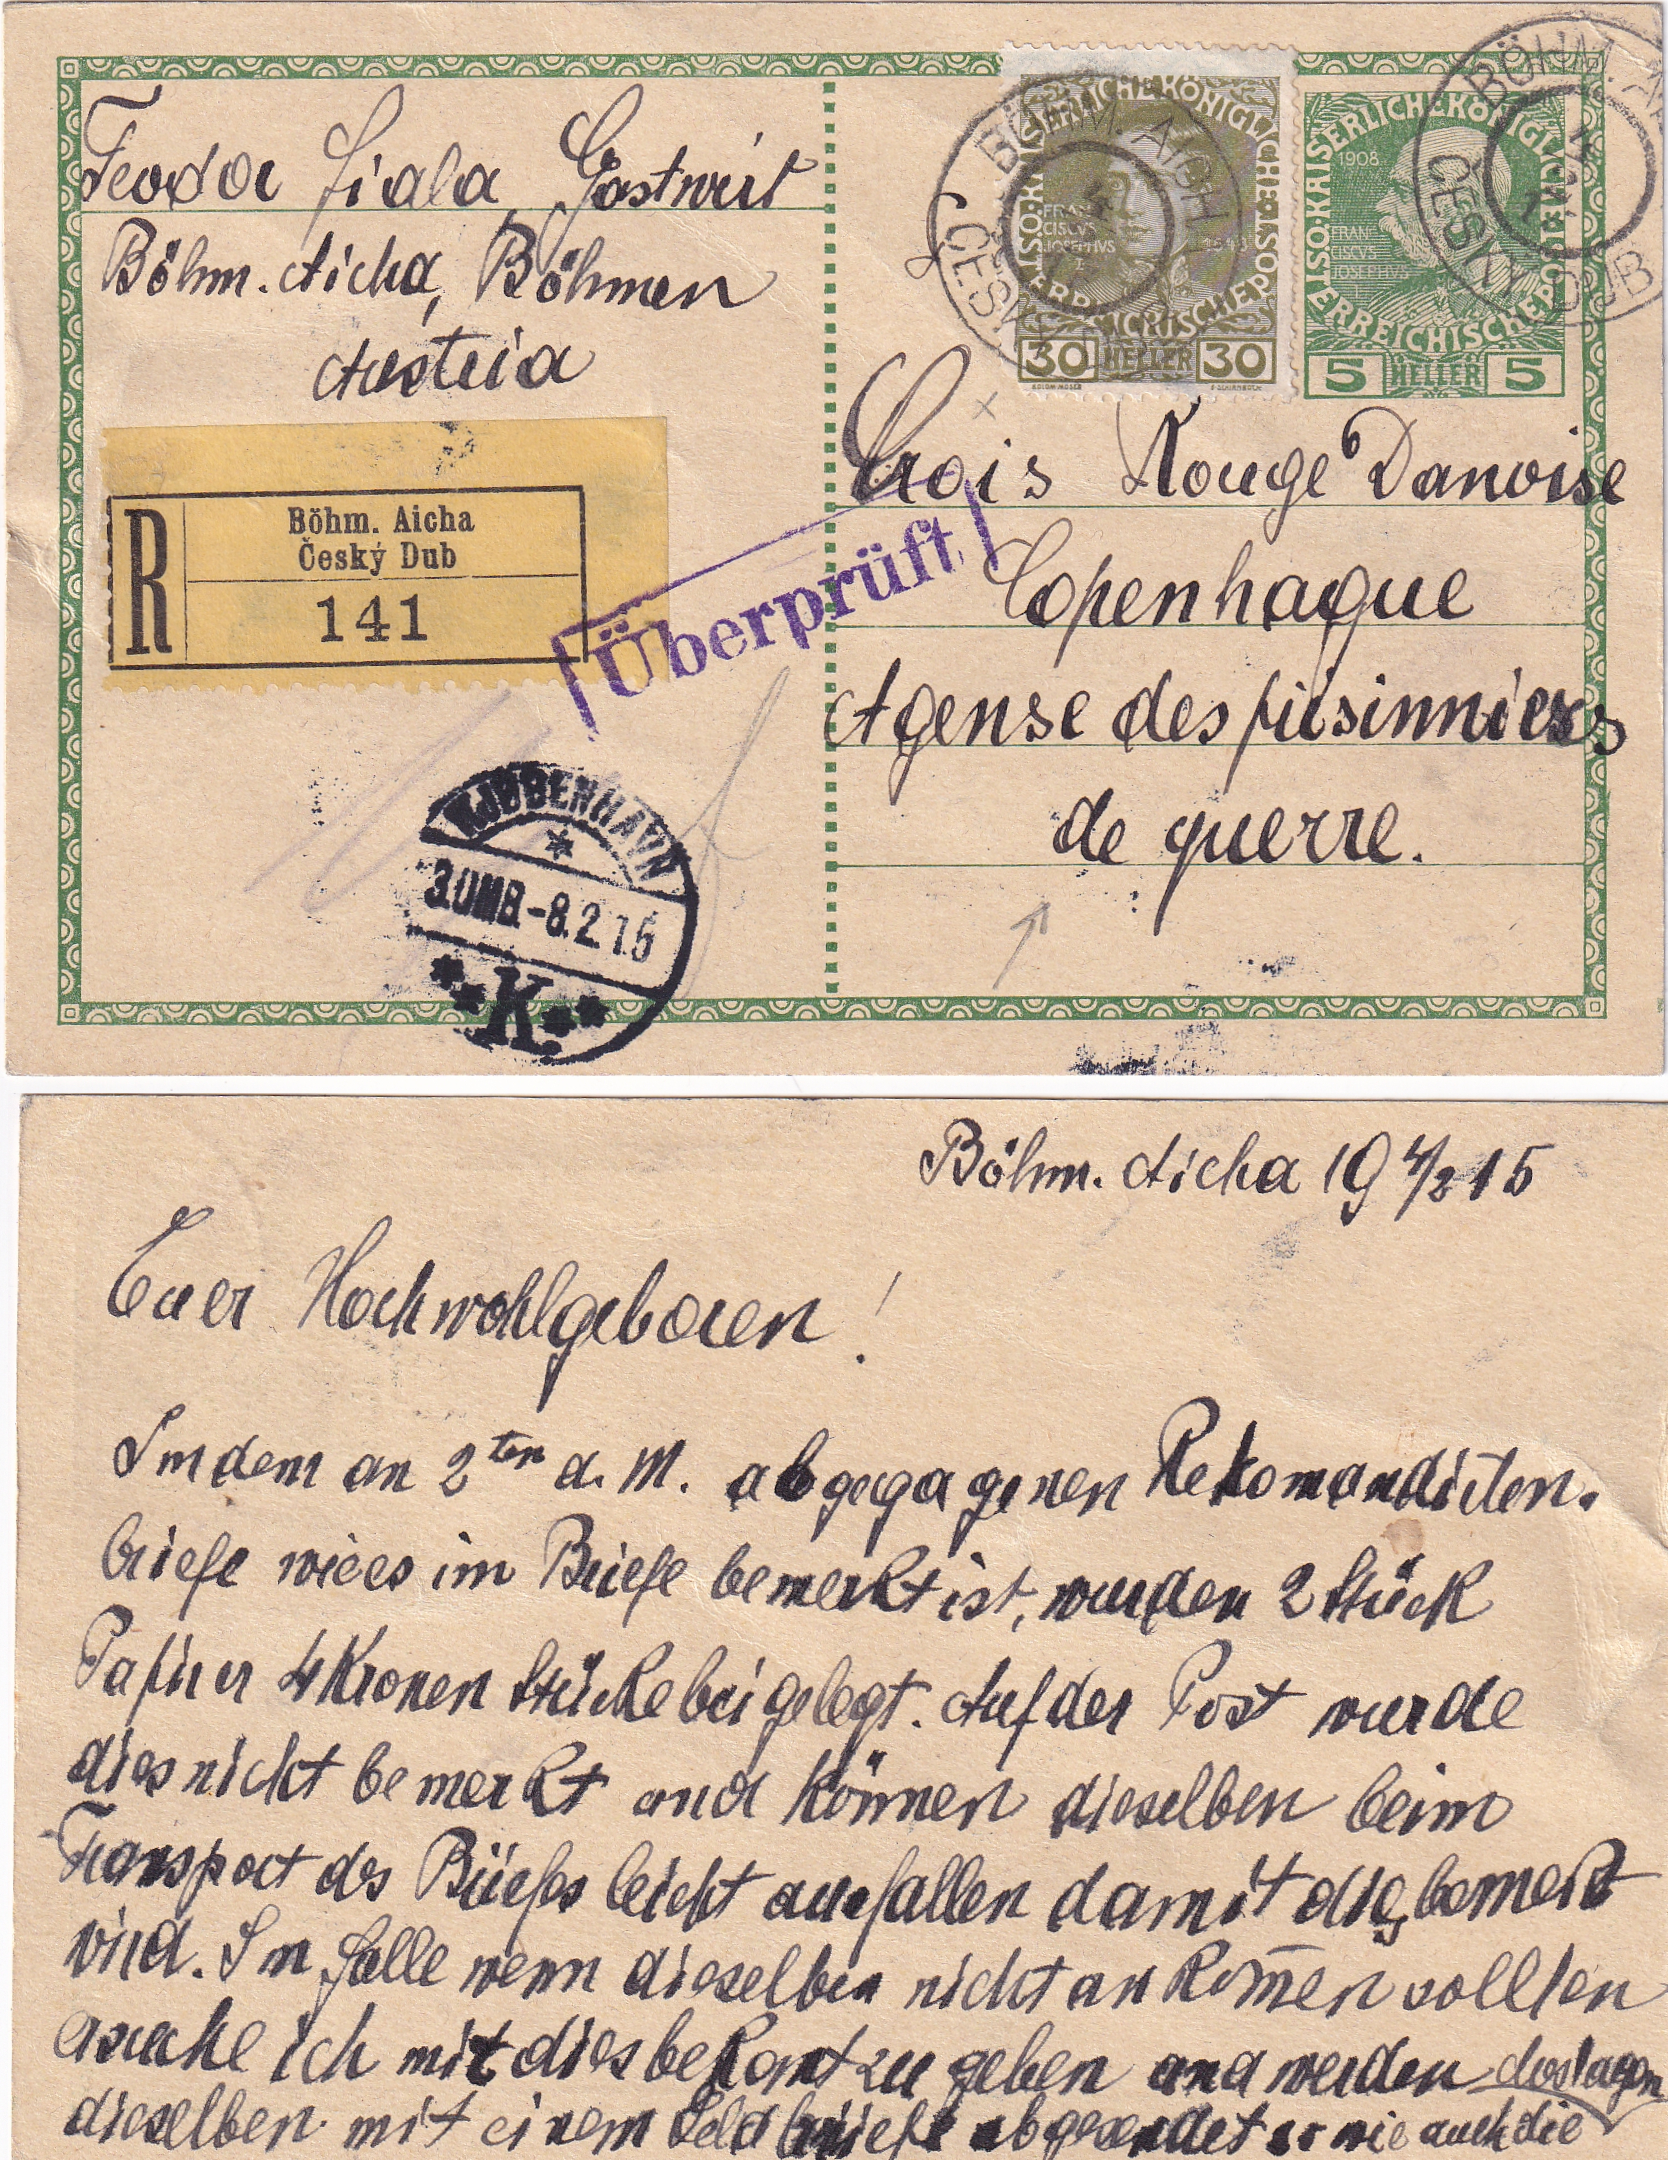 Teodor Fiala Gastwirt
Böhm. Aicha, Böhmen
Austria
R
Böhm. Aicha
Český Dub
141
Überprüft
KJØBENHAVN
3.OMB.-8.2.15
K.
BÖHM. AICHA
ČESKÝ DUB
4
KAISERLICHE KÖNIGLICHE
ÖSTERREICHISCHE POST
FRAN
CISCVS
JOSEPHVS
1848
30 HELLER 30
KOLOM. MOSER
F. SCHIRNBÖCK
BÖHM. AI
ČESKÝ DUB
KAISERLICHE KÖNIGLICHE
ÖSTERREICHISCHE POST
1908
FRAN
CISCVS
JOSEPHVS
5 HELLER 5
Crois Rouge Danoise
Copenhague
Agense des prisinniers
de guerre.
Böhm. Aicha 19 4/2 15
Euer Hochwohlgeboren!
In dem an 2ten d. M. abgegagenen Rekomandirten.
briefe wie es im Briefe bemerkt ist, wurden 2 Stück
Papirer 4 Kronen Stücke beigelegt. Auf der Post wurde
dies nicht bemerkt und können dieselben beim
Transport des Briefes leicht ausfallen damit dies bemerkt
wird. Im falle wenn dieselben nicht ankom̄en sollten
ersuche ich mit dies bekant zu geben und werden
dieselben mit einem Geldbriefe abgesendet so wie auch die